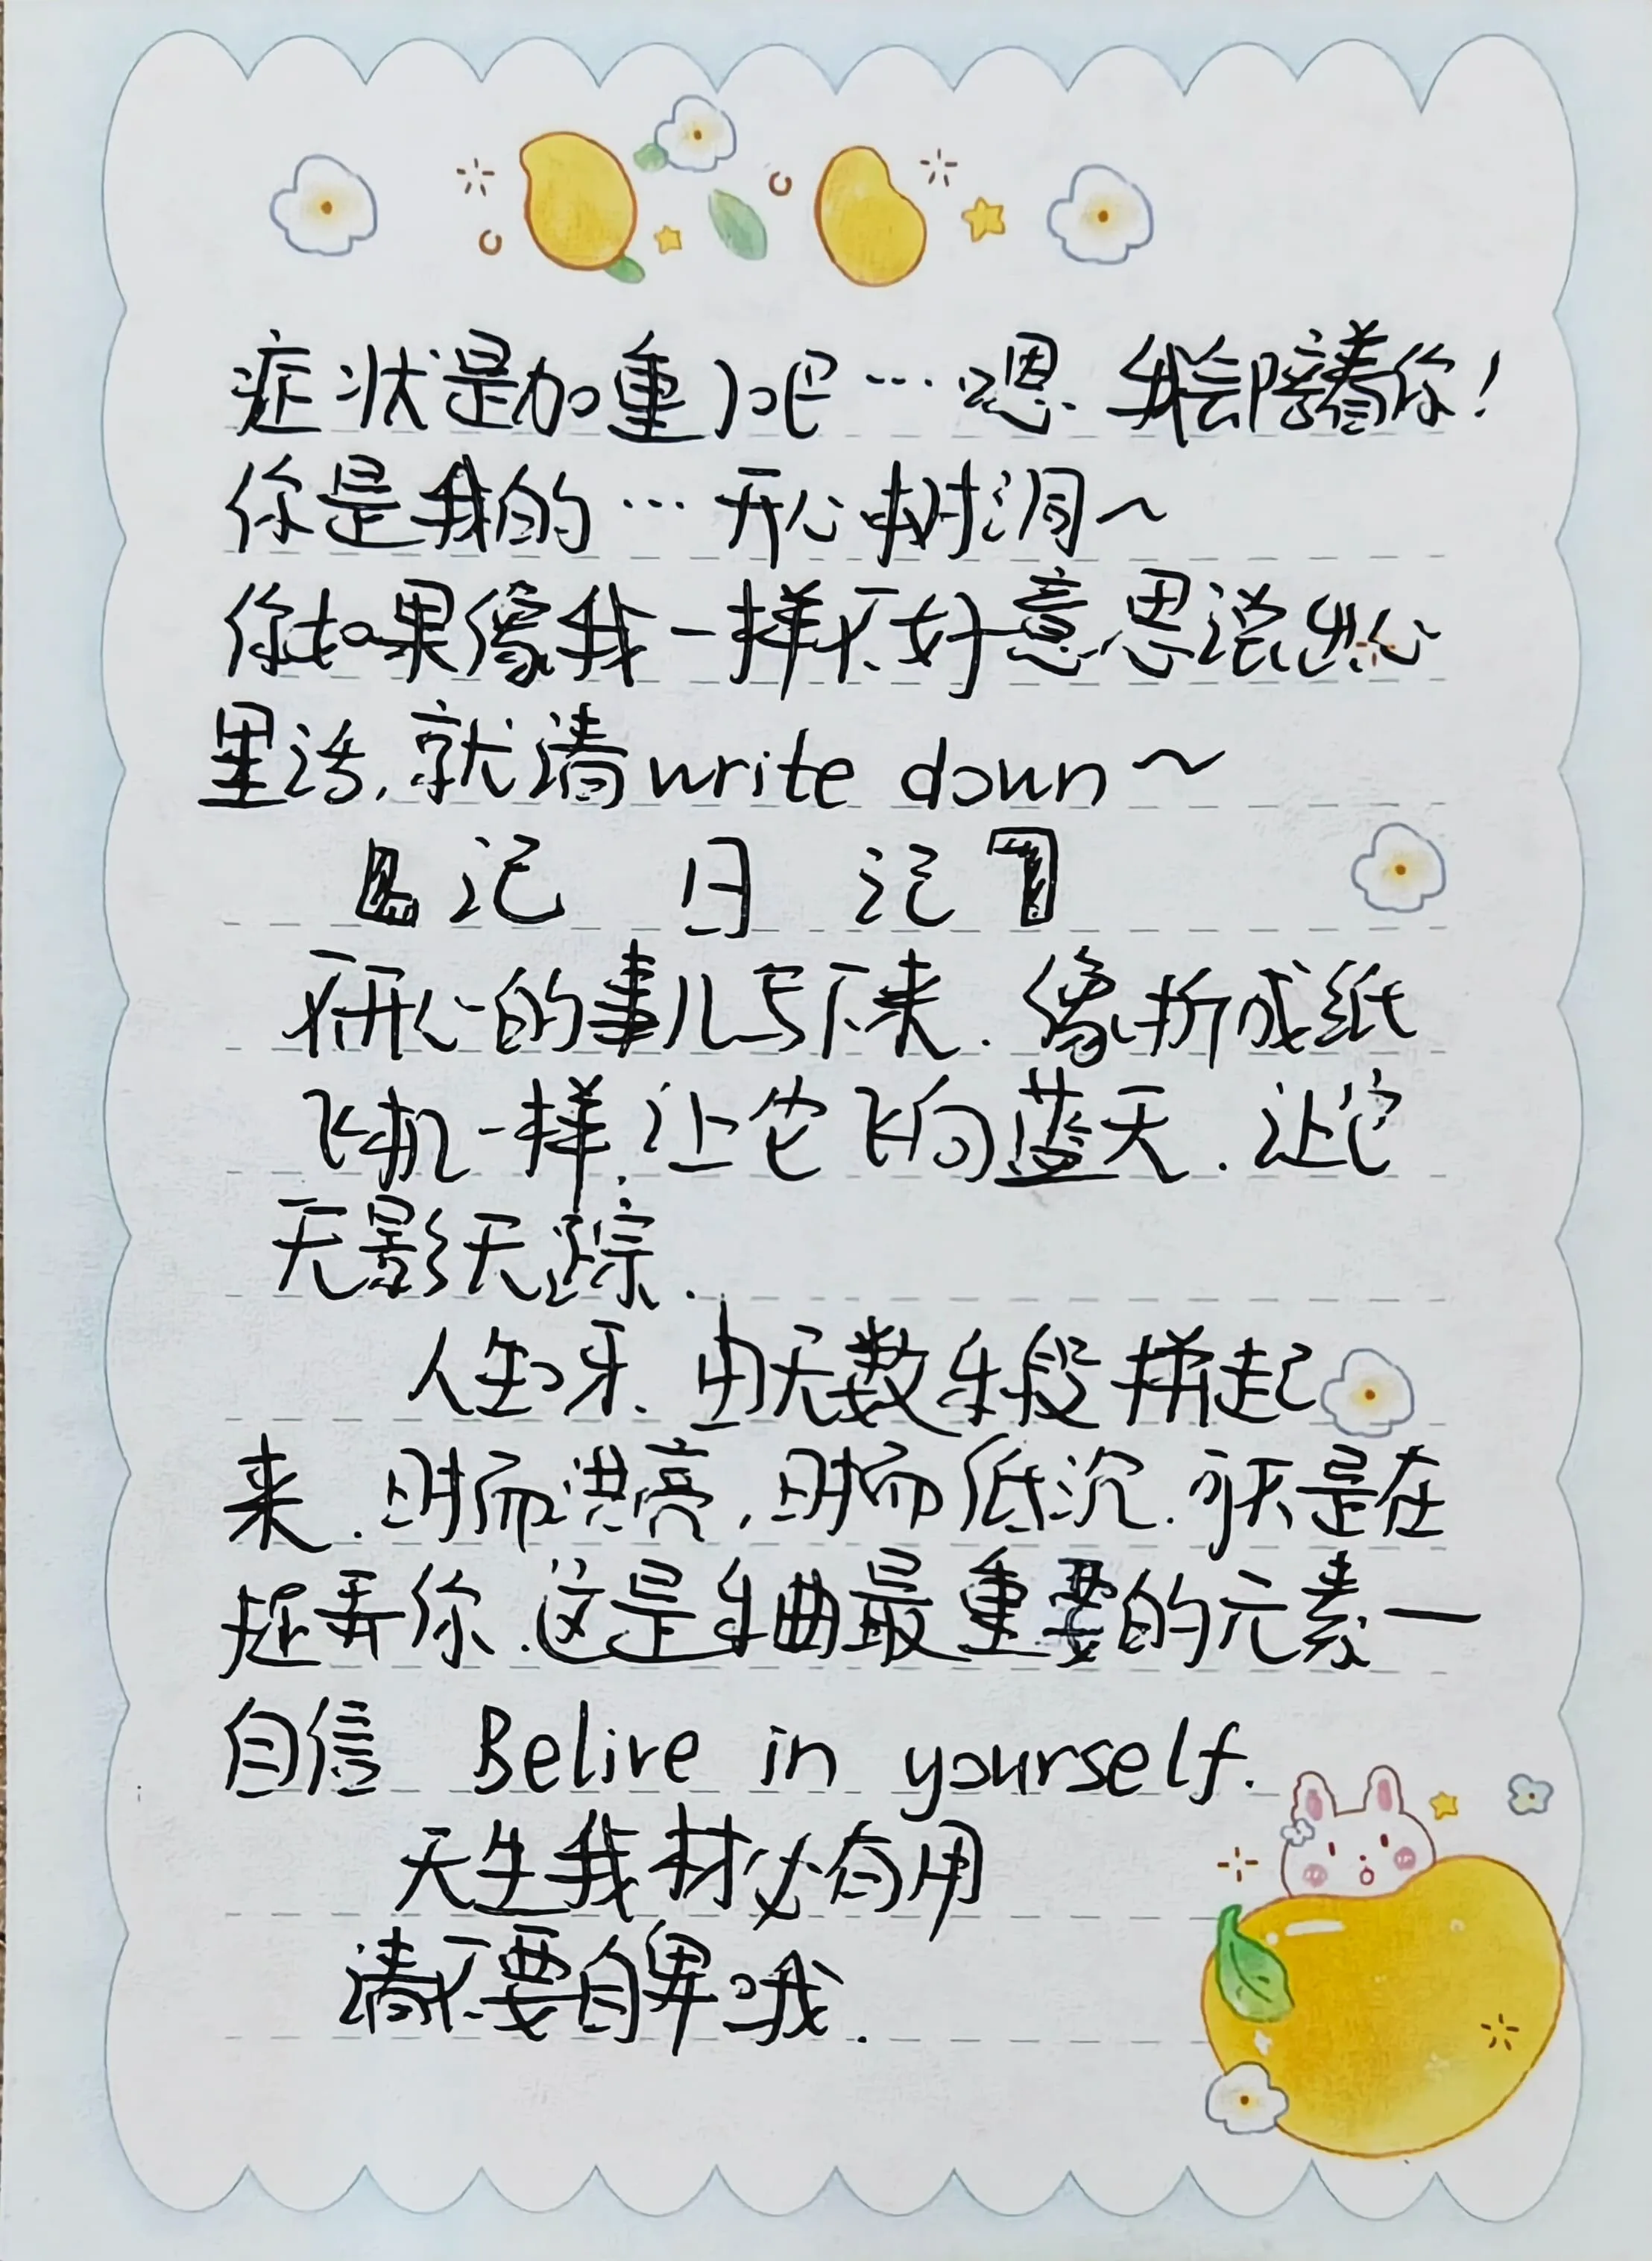 症状是加重了吧…嗯.我会陪着你!
你是我的…开心树洞~
你如果像我一样不好意思说出心
里话,就请write down~
【记 日 记】
不开心的事儿写下来.像折成纸
飞机一样.让它飞向蓝天.让它
无影无踪.
人生呀.由无数乐段拼起
来.时而洪亮,时而低沉.就是在
捉弄你.这是乐曲最重要的元素—
自信 Belive in yourself.
天生我材必有用
请不要自卑哦.